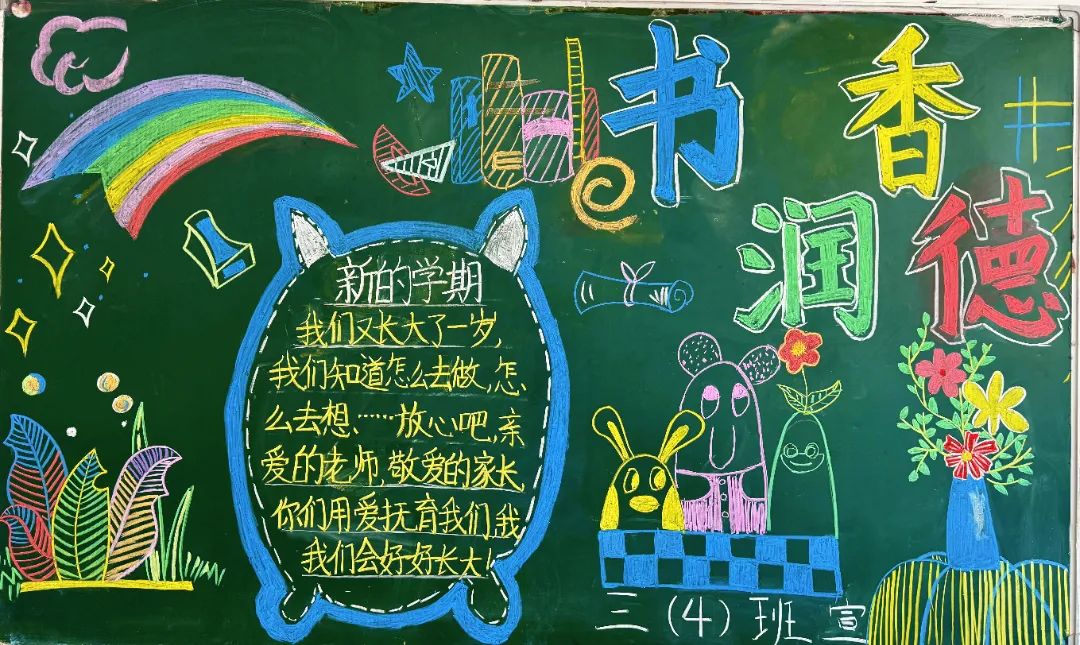 书香
润德
新的学期
我们又长大了一岁,
我们知道怎么去做、怎
么去想、……放心吧,亲
爱的老师,敬爱的家长,
你们用爱抚育我们,我
我们会好好长大!
三(4)班 宣